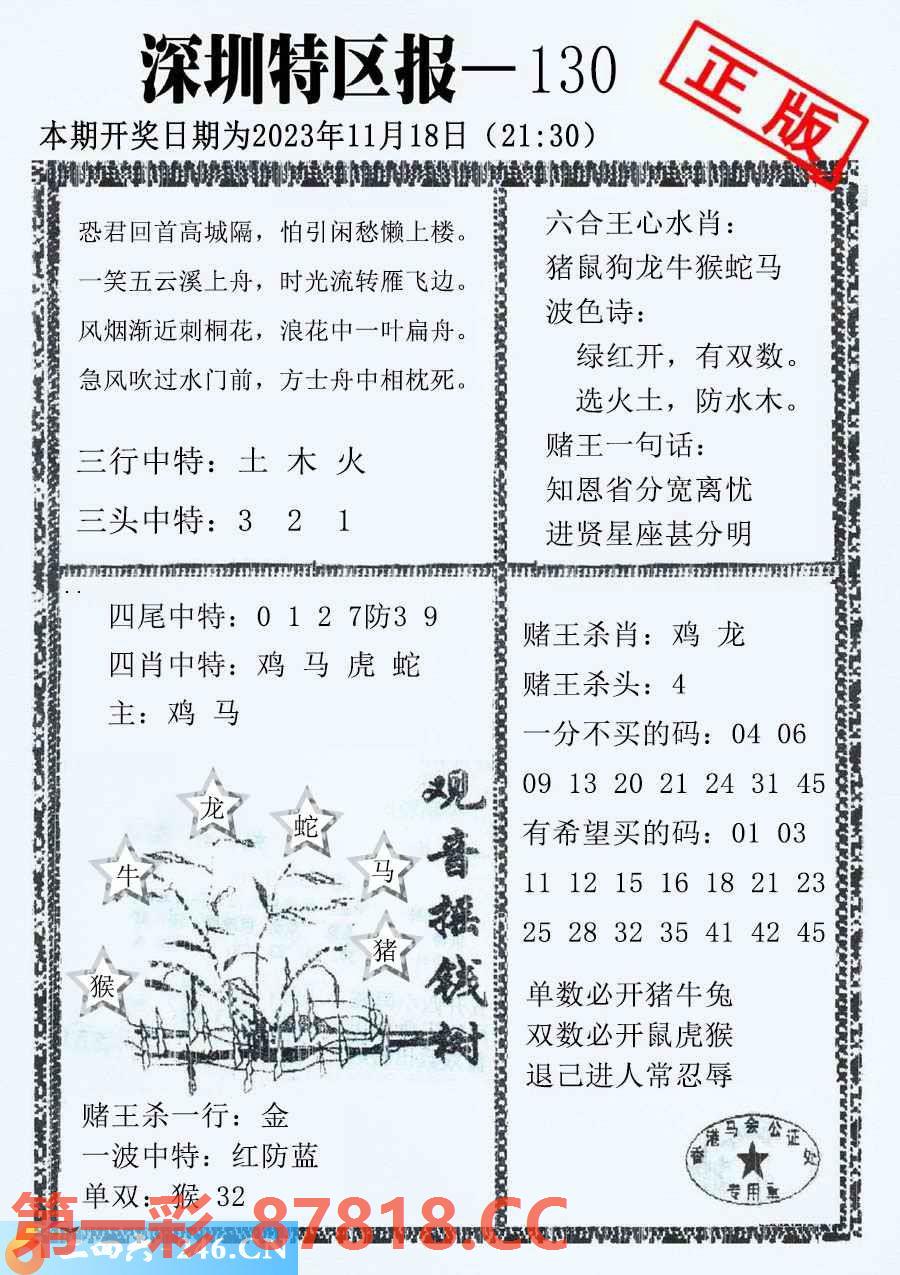 深圳特区报—130
正版
本期开奖日期为2023年11月18日（21:30）
恐君回首高城隔，怕引闲愁懒上楼。
一笑五云溪上舟，时光流转雁飞边。
风烟渐近刺桐花，浪花中一叶扁舟。
急风吹过水门前，方士舟中相枕死。
三行中特：土 木 火
三头中特：3 2 1
六合王心水肖：
猪鼠狗龙牛猴蛇马
波色诗：
绿红开，有双数。
选火土，防水木。
赌王一句话：
知恩省分宽离忧
进贤星座甚分明
四尾中特：0 1 2 7防3 9
四肖中特：鸡 马 虎 蛇
主：鸡 马
龙
蛇
牛
马
猪
猴
观音摇钱树
赌王杀一行：金
一波中特：红防蓝
单双：猴 32
赌王杀肖：鸡 龙
赌王杀头：4
一分不买的码：04 06
09 13 20 21 24 31 45
有希望买的码：01 03
11 12 15 16 18 21 23
25 28 32 35 41 42 45
单数必开猪牛兔
双数必开鼠虎猴
退己进人常忍辱
香港马会公证处
专用章
第一彩 87818.CC
246.CN